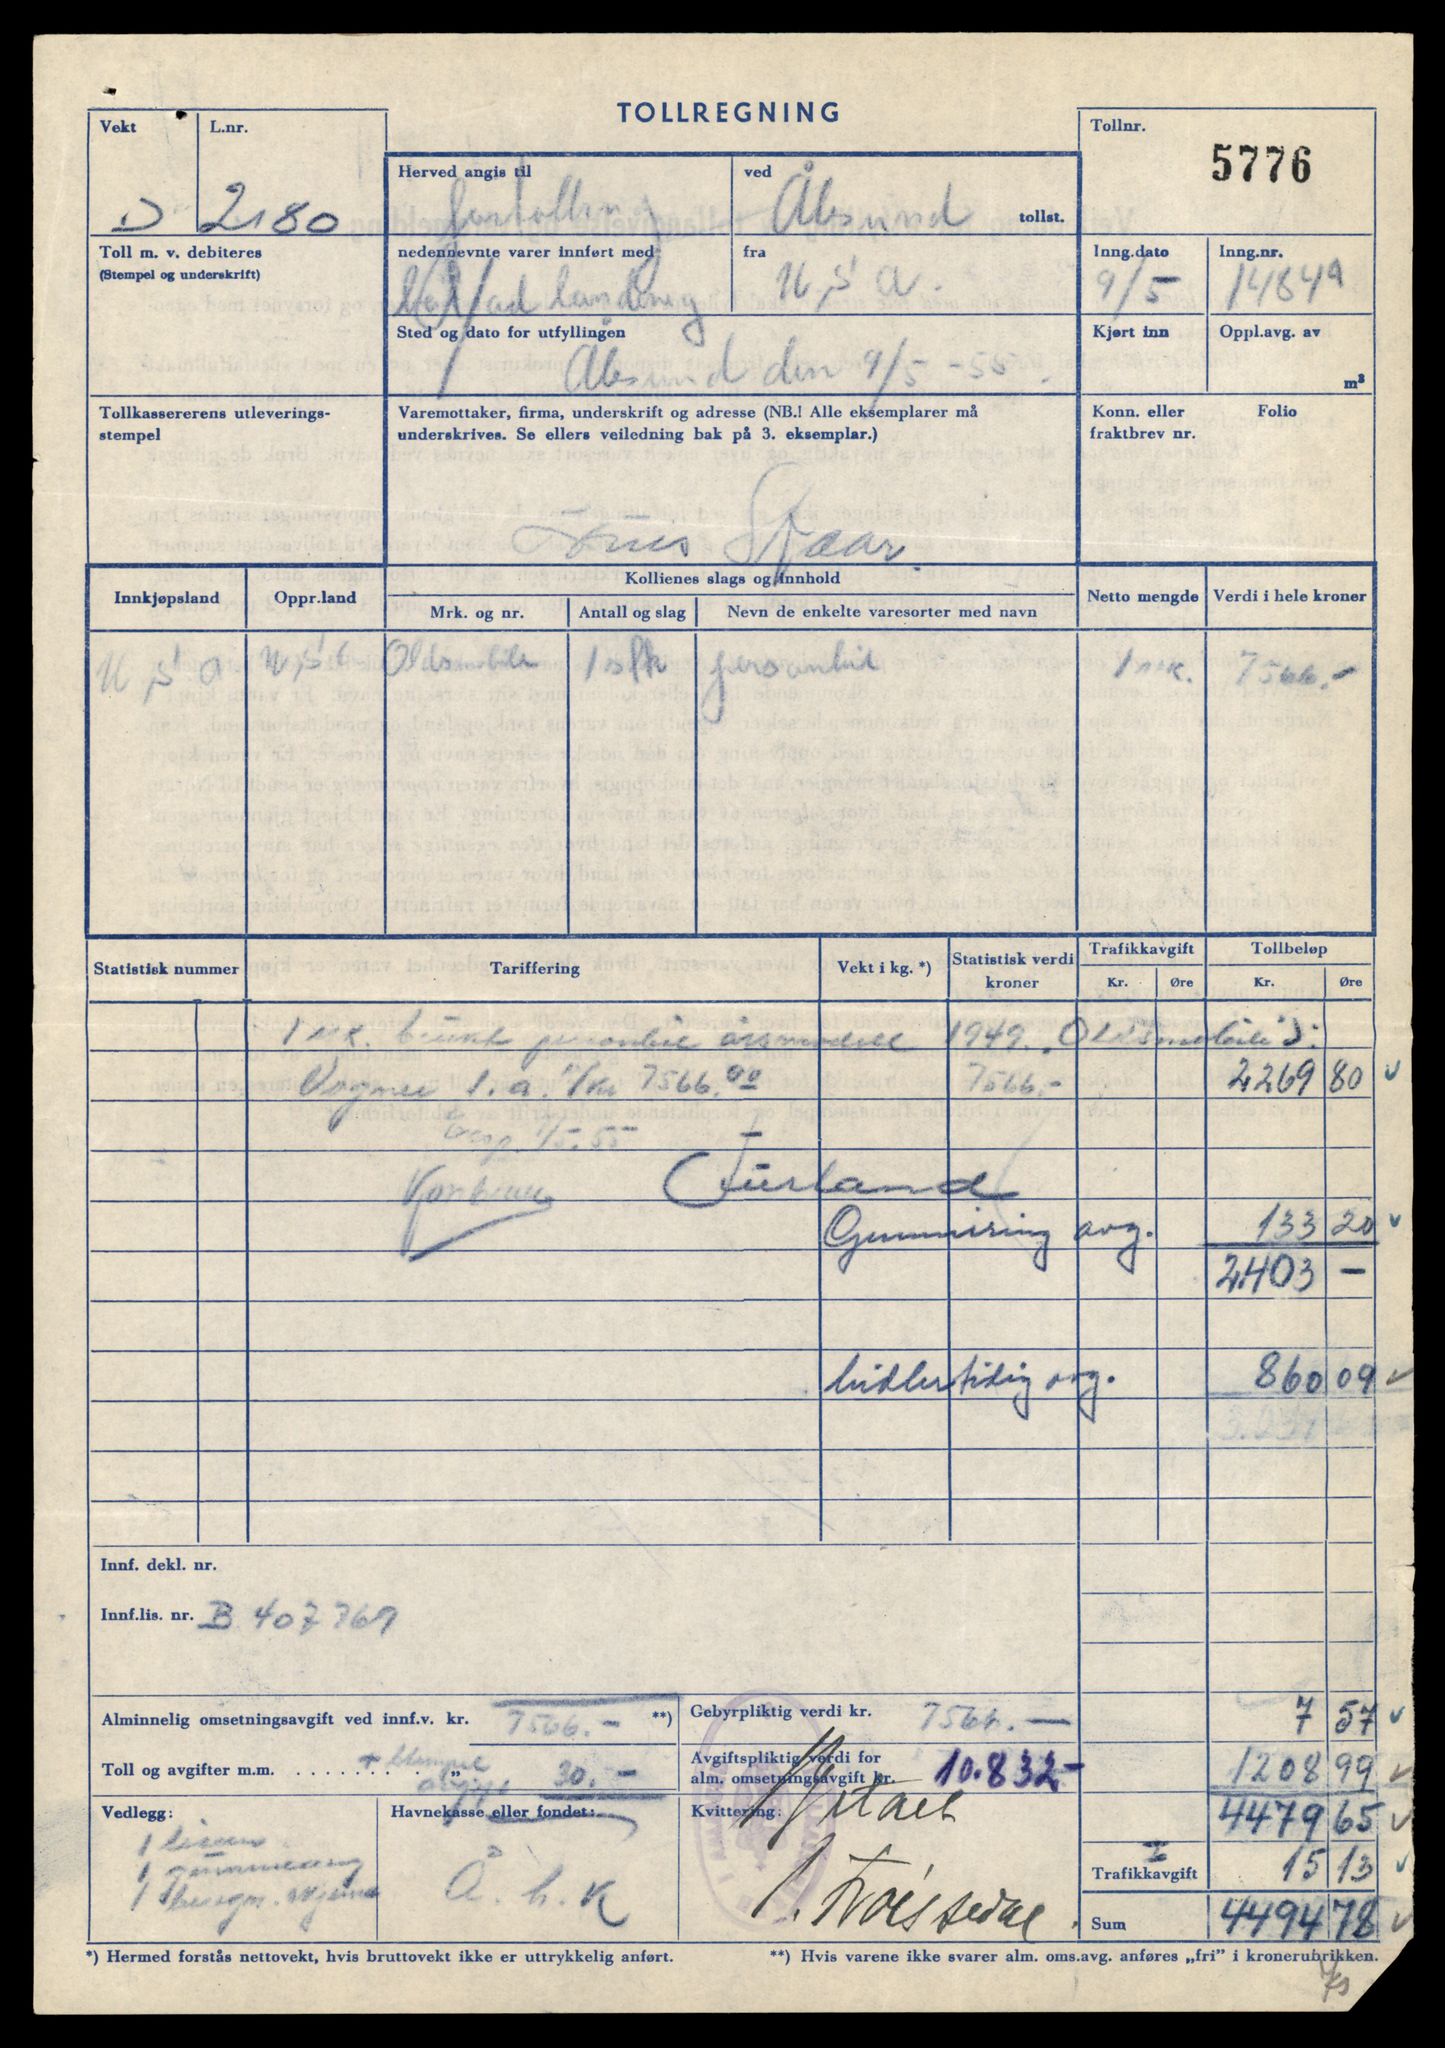 TOLLREGNING
Vekt
L.nr.
Tollnr.
5776
D 2180
Herved angis til
fortolling
ved
Ålesund
tollst.
Toll m. v. debiteres
(Stempel og underskrift)
nedennevnte varer innført med
landing
fra
U S A.
Inng.dato
9/5
Inng.nr.
Sted og dato for utfyllingen
Ålesund den 9/5 -55.
Kjørt inn
Oppl.avg. av
m³
Tollkassererens utleverings-
stempel
Varemottaker, firma, underskrift og adresse (NB.! Alle eksemplarer må
underskrives. Se ellers veiledning bak på 3. eksemplar.)
Konn. eller
fraktbrev nr.
Folio
Innkjøpsland
Oppr.land
Kollienes slags og innhold
Mrk. og nr.
Antall og slag
Nevn de enkelte varesorter med navn
Netto mengde
Verdi i hele kroner
U S A U S A Oldsmobile 1 stk personbil 1 stk. 7566.-
Statistisk nummer
Tariffering
Vekt i kg. *)
Statistisk verdi
kroner
Trafikkavgift
Kr. Øre
Tollbeløp
Kr. Øre
1 stk. brukt personbil årsmodell 1949. "Oldsmobile":
Vogner 1. a. 7566.00 7566.- 2269 80
5.55
Gummiring avg. 133 20
2403 -
Midlertidig avg. 860 09
Innf. dekl. nr.
Innf.lis. nr. B 407769
Alminnelig omsetningsavgift ved innf.v. kr. 7566.- **)
Gebyrpliktig verdi kr. 7566.-
7 57
Toll og avgifter m.m. . . . . . . . . „ + stempel avgift 30.-
Avgiftspliktig verdi for
alm. omsetningsavgift kr. 10.832-
1208 99
Vedlegg:
Havnekasse eller fondet:
Å. h. K
Kvittering:
4479 65
Trafikkavgift 15 13
Sum 4494 78
*) Hermed forstås nettovekt, hvis bruttovekt ikke er uttrykkelig anført.
**) Hvis varene ikke svarer alm. oms.avg. anføres „fri” i kronerubrikken.